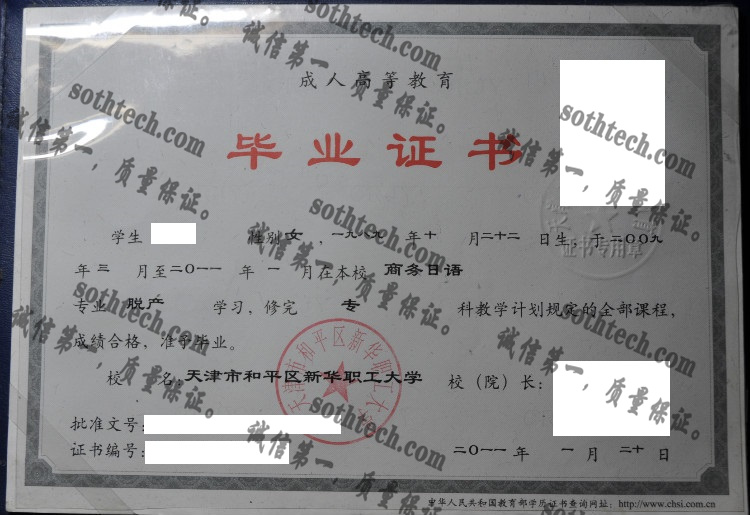 成人高等教育
毕业证书
学生 性别 女，一九八九 年 十 月 二十二 日生，于 二〇〇九
年 三 月至 二〇一一 年 一 月在本校 商务日语
专业 脱产 学习，修完 专 科教学计划规定的全部课程，
成绩合格，准予毕业。
校 名：天津市和平区新华职工大学 校（院）长：
天津市和平区新华职工大学
批准文号：
证书编号： 二〇一一 年 一 月 二十 日
中华人民共和国教育部学历证书查询网址：http://www.chsi.com.cn
sothtech.com
诚信第一，质量保证。
sothtech.com
诚信第一，质量保证。
sothtech.com
诚信第一，质量保证。
sothtech.com
诚信第一，质量保证。
sothtech.com
诚信第一，质量保证。
sothtech.com
诚信第一，质量保证。
sothtech.com
诚信第一，质量保证。